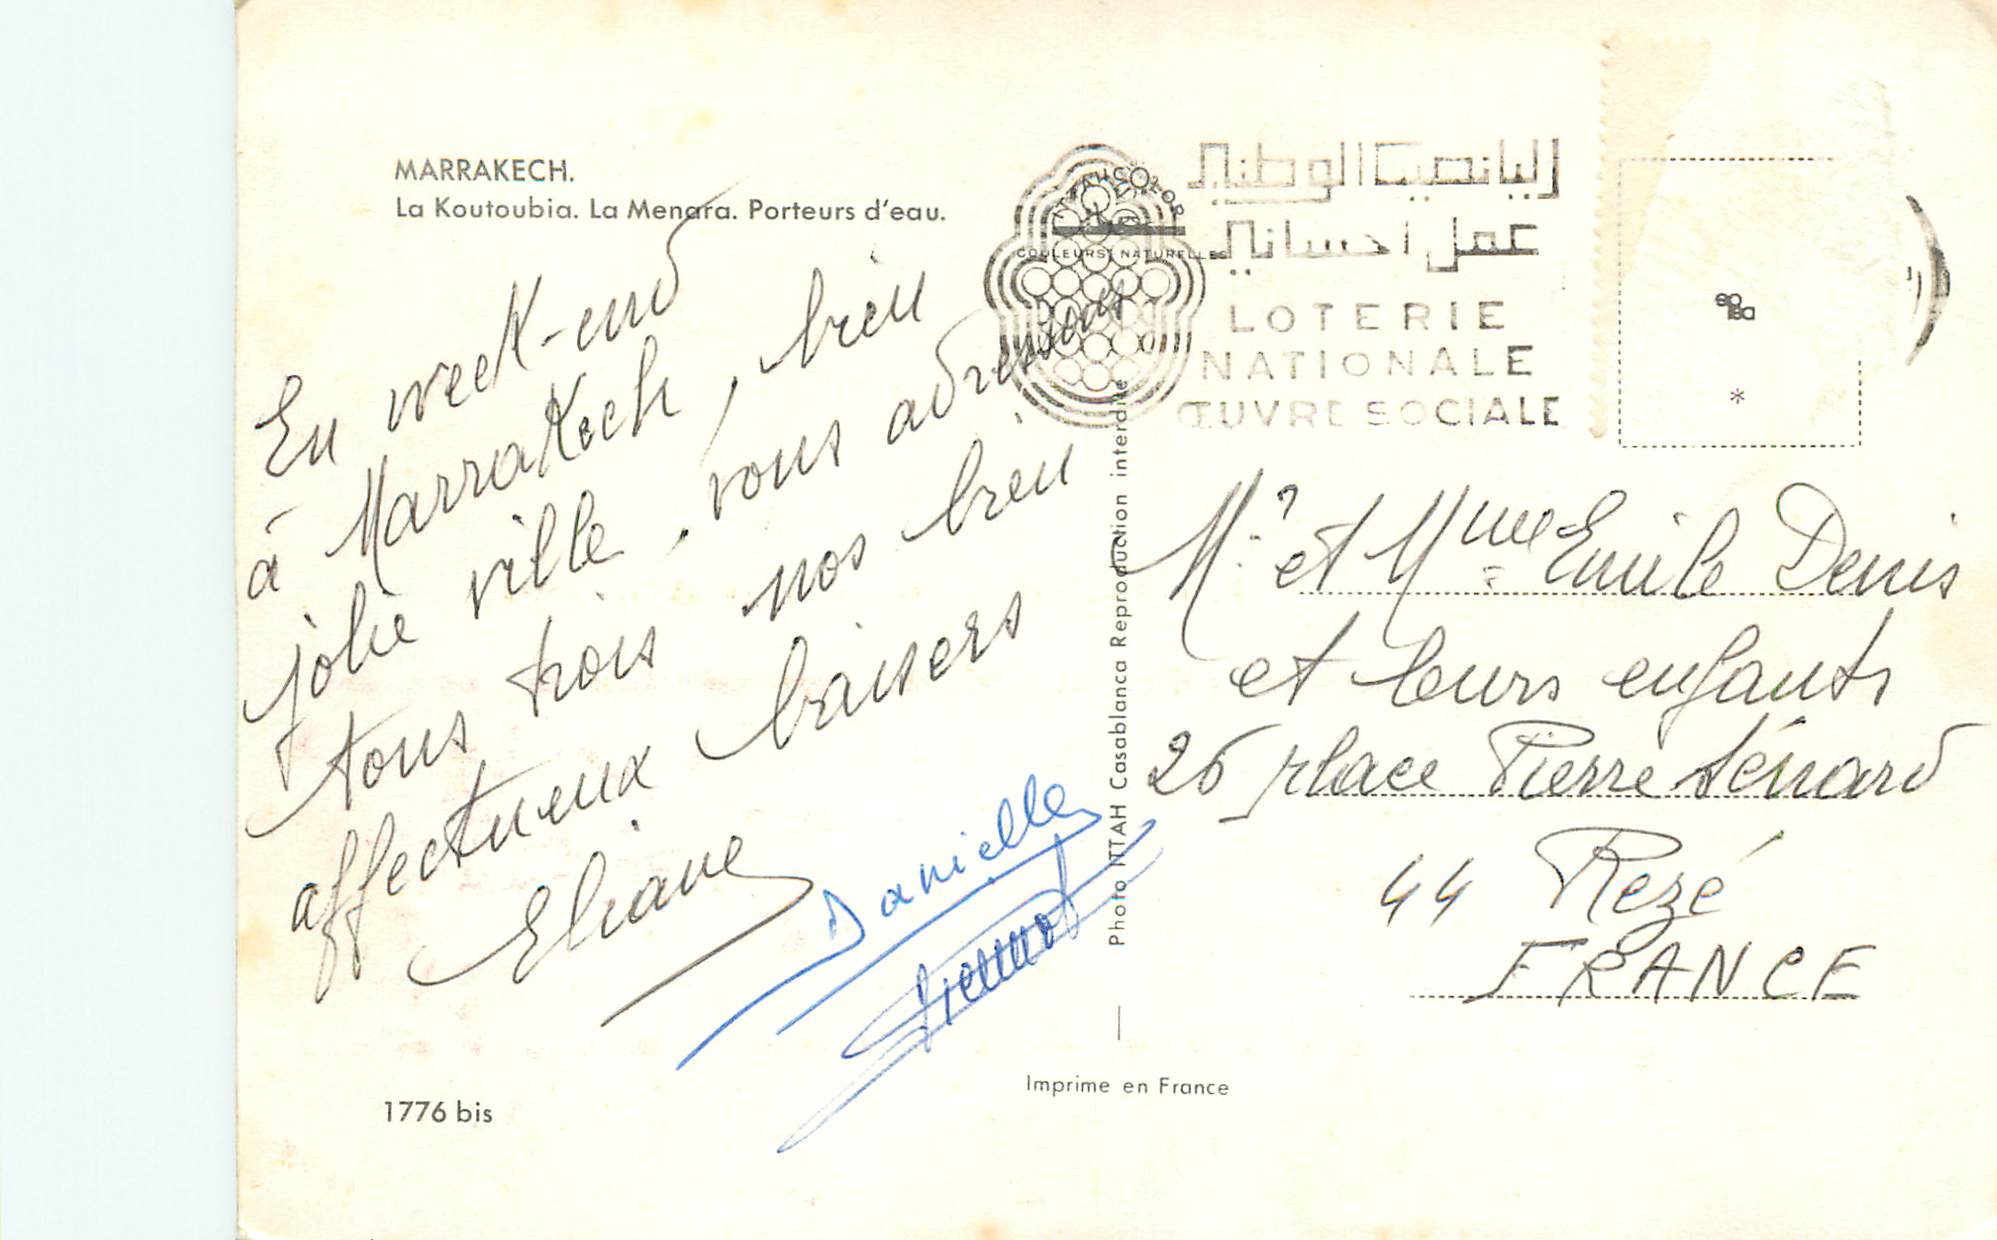 MARRAKECH.
La Koutoubia. La Menara. Porteurs d'eau.
En week-end
à Marrakech, bien
jolie ville, vous adressons
tous trois nos bien
affectueux baisers
Eliane
Danielle
1776 bis
ITTAHCOLOR
COULEURS NATURELLES
اليانصيب الوطني
عمل احساني
LOTERIE
NATIONALE
ŒUVRE SOCIALE
*
Photo ITTAH Casablanca Reproduction interdite
Imprime en France
Mr et Mme Emile Denis
et leurs enfants
26 place Pierre Sénard
44 Rezé
FRANCE